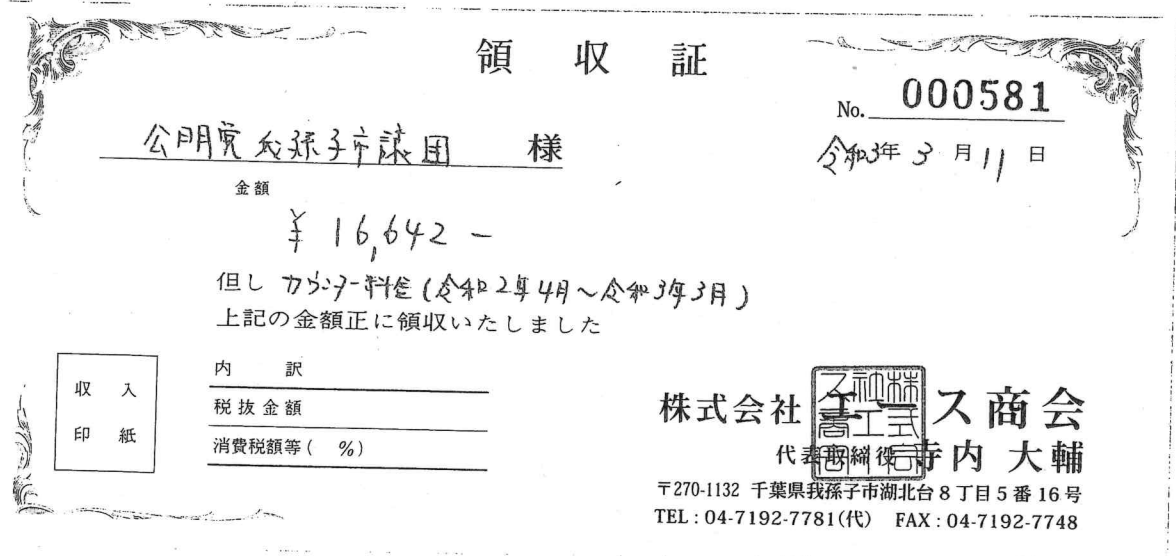 領収証
No. 000581
公明党我孫子市議団 様
令和3年 3 月 11 日
金額
¥ 16,642 −
但し カウンター料金 (令和2年4月〜令和3年3月)
上記の金額正に領収いたしました
収入
印紙
内訳
税抜金額
消費税額等( %)
株式会社エース商会
代表取締役 寺内 大輔
〒270-1132 千葉県我孫子市湖北台8丁目5番16号
TEL : 04-7192-7781(代) FAX : 04-7192-7748